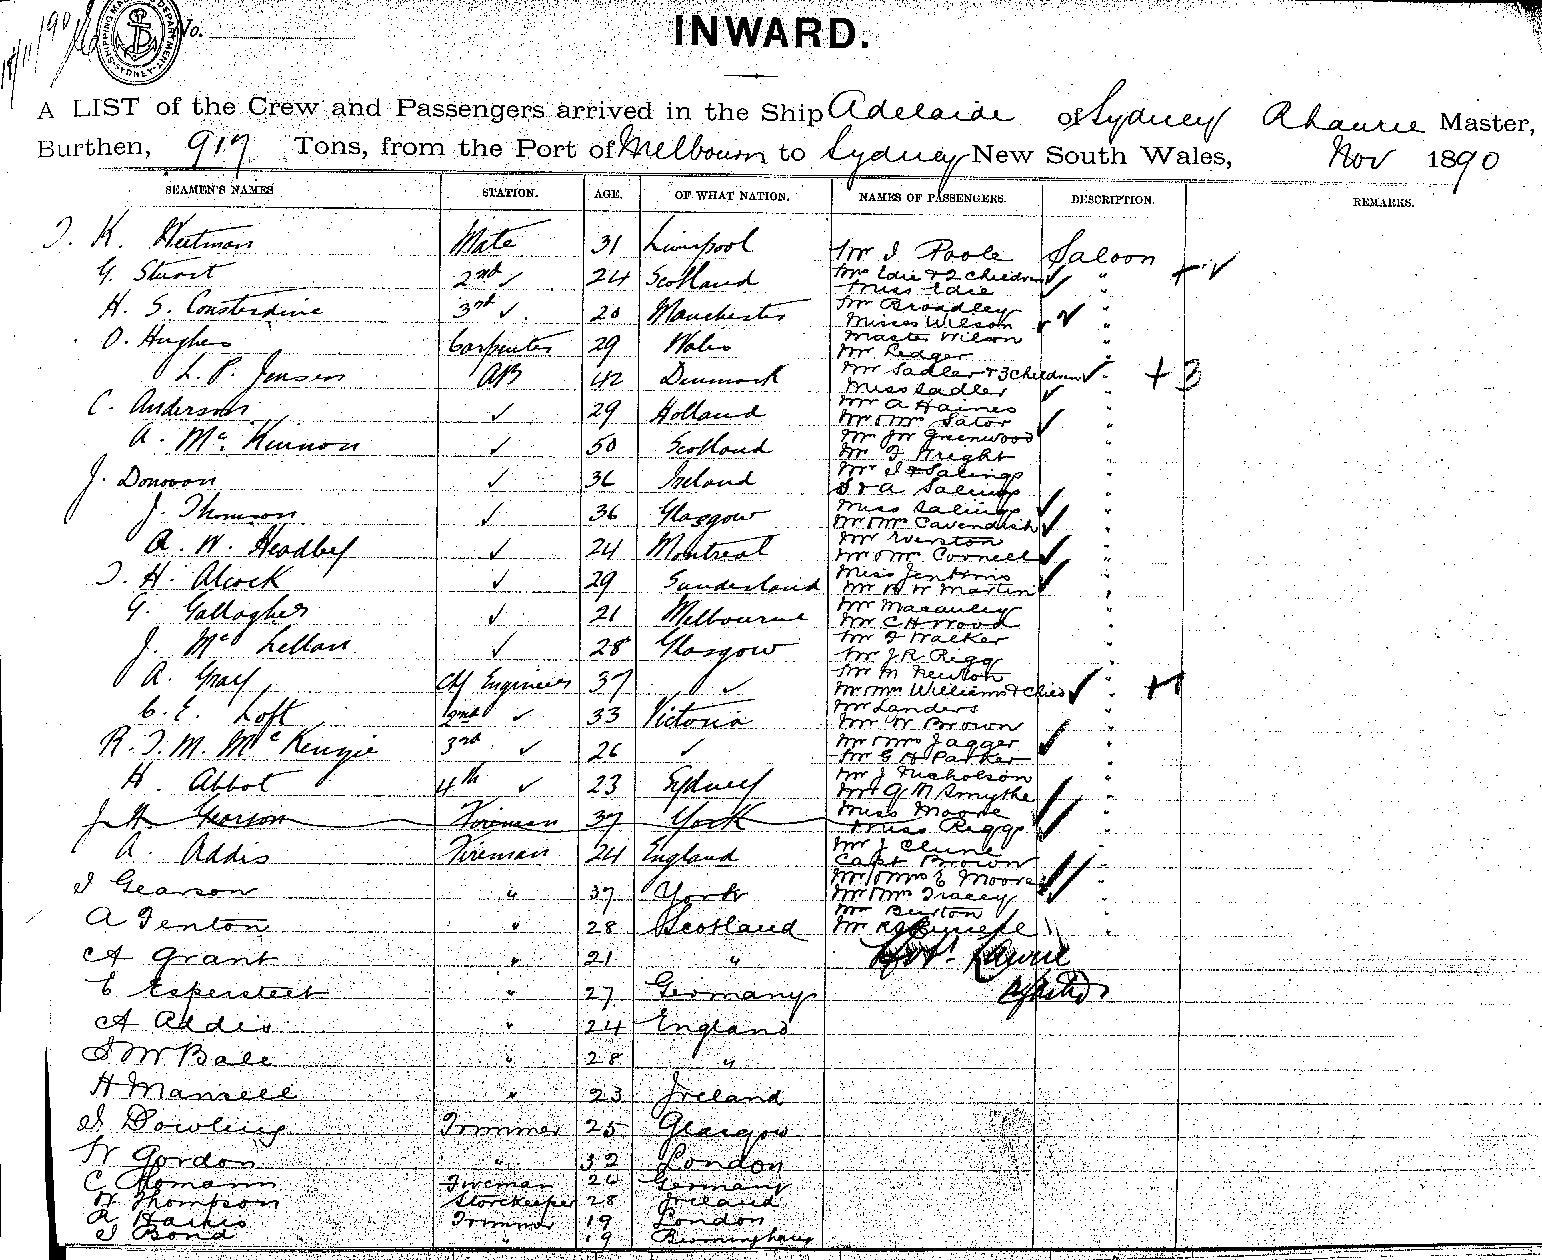 No.
INWARD.
A LIST of the Crew and Passengers arrived in the Ship Adelaide of Sydney Master,
Burthen, 917 Tons, from the Port of Melbourn to Sydney New South Wales, Nov 1890
SEAMEN'S NAMES STATION. AGE. OF WHAT NATION. NAMES OF PASSENGERS. DESCRIPTION. REMARKS.
K. Mate 31 Liverpool Mr J Poole Saloon
G. Stuart 2nd ✓ 24 Scotland Mrs Edie & 2 children ✓ " + ✓
Miss Edie "
H. S. Consterdine 3rd ✓ 20 Manchester Mr Broadley
Misses Wilson ✓ "
O. Hughes Carpenter 29 Wales Master Wilson "
Mr Ledger "
L. P. Jensen AB 42 Denmark Mr Sadler & 3 children ✓ " + 3
Miss Sadler ✓
C. Anderson ✓ 29 Holland Mr A Haines "
Mr & Mrs Sator ✓ "
A. McKinnon ✓ 50 Scotland Mr JW Greenwood "
Mr Wright
J. Donovan ✓ 36 Ireland Mr Salings "
S & A Salings "
J. Thomson ✓ 36 Glasgow Miss Salings ✓
Mr & Mrs Cavendish ✓ "
A. W. ✓ 24 Montreal Mr "
Mr & Mrs Cornell ✓ "
J. H. Alcock ✓ 29 Sunderland Miss Jenkins ✓
Mr H W Martin "
G. Gallagher ✓ 21 Melbourne Mr Macauley "
Mr C H Wood "
J. McLellan ✓ 28 Glasgow Mr Walker "
Mr J R Rigg "
A. Gray Chf Engineer 37 ✓ Mr M Newton
Mr & Mrs Williams & Child ✓ " + 1
C. E. Loft 2nd ✓ 33 Victoria Mr Landers "
Mr W Brown "
R. J. M. McKenzie 3rd ✓ 26 ✓ Mr & Mrs Jagger ✓ "
Mr G H Parker "
H. Abbot 4th ✓ 23 Sydney Mr J Nicholson "
Mr G M Smythe "
J H Gearson Fireman 37 York Miss Moore ✓ "
Miss Riggs ✓ "
A. Addis Fireman 24 England Mr J Clune
Capt Brown "
J Gearson " 37 York Mr & Mrs E Moore ✓ "
Mr & Mrs Tracey ✓ "
A Fenton " 28 Scotland Mr Burton "
Mr "
A Grant " 21 " Lawrie
E Espersteet " 27 Germany
A Addis " 24 England
J W Bale " 28 "
H Mansell " 23 Ireland
J Dowling Trimmer 25 Glasgow
W Gordon " 32 London
C Homann Fireman 24 Germany
W Thompson Storekeeper 28 Ireland
R Trimmer 19 London
J Bond " 19 Birmingham